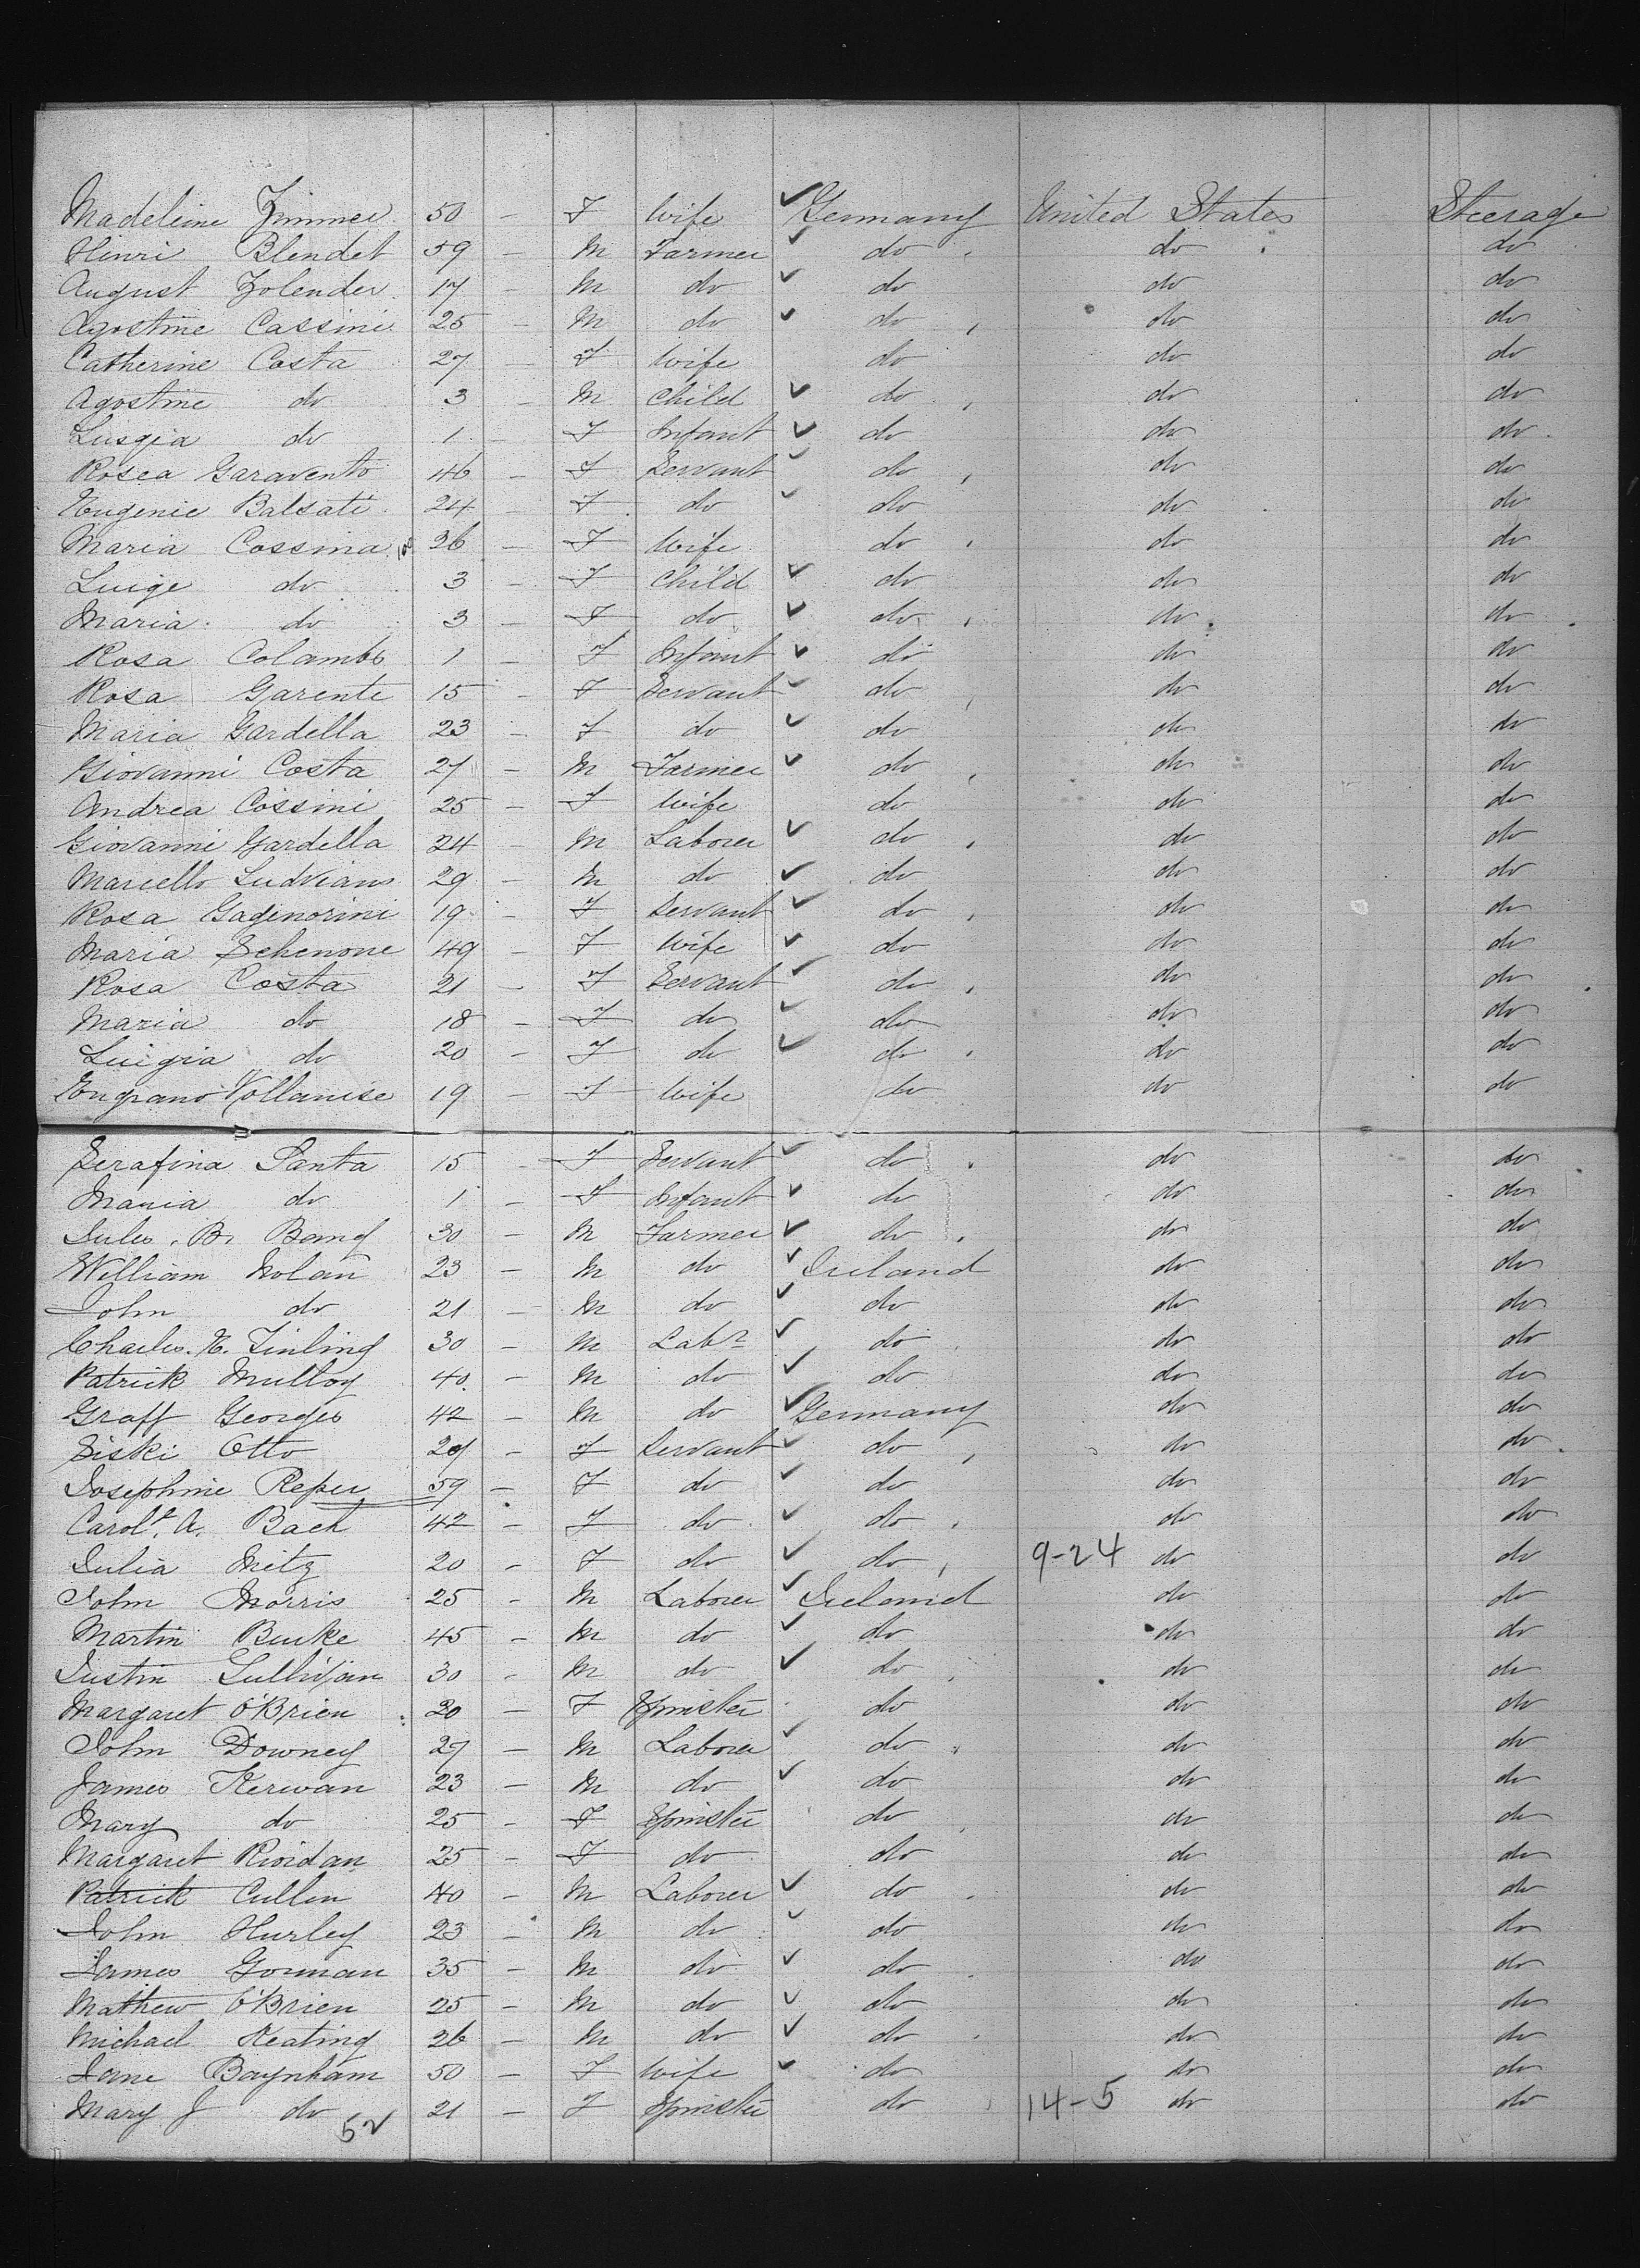 Madeleine Zimmer 50 - F Wife ✓ Germany United States Steerage
Hinri Blendet 59 - M Farmer ✓ do do do
August Zolender 17 - M do ✓ do do do
Agostine Cassini 25 - M do ✓ do do do
Catherine Costa 27 - F Wife do do do
Agostine do 3 - M Child ✓ do do do
Luigia do 1 - F Infant ✓ do do do
Rosea Garavento 46 - F Servant ✓ do do do
Eugenie Balsati 24 - F do ✓ do do do
Maria Cossina 26 - F Wife do do do
Luige do 3 - F Child ✓ do do do
Maria do 3 - F do ✓ do do do
Rosa Colambo 1 - F Infant ✓ do do do
Rosa Garente 15 - F Servant ✓ do do do
Maria Gardella 23 - F do ✓ do do do
Giovanni Costa 27 - M Farmer ✓ do do do
Andrea Cossini 25 - F Wife do do do
Giovanni Gardella 24 M Laborer ✓ do do do
Marcello 29 - M do ✓ do do do
Rosa Gagenorini 19 - F Servant ✓ do do do
Maria Schenone 49 - F Wife ✓ do do do
Rosa Costa 21 - F Servant ✓ do do do
Maria do 18 - F do ✓ do do do
Luigia do 20 - F do ✓ do do do
19 - F Wife do do do
Serafina Santa 15 - F Servant ✓ do do do
Maria do 1 - F Infant ✓ do do do
Jules . B. 30 - M Farmer ✓ do do do
William Nolan 23 - M do ✓ Ireland do do
John do 21 M do ✓ do do do
Charles. H. Tinling 30 - M Labr ✓ do do do
Patrick Mulloy 40 - M do ✓ do do do
Graff Georges 42 - M do ✓ Germany do do
Siski Otto 29 - F Servant ✓ do do do
Josephine Reper 59 - F do ✓ do do do
Carolt. A. Bach 42 - F do ✓ do do do
Julia Mitz 20 - F do ✓ do 9-24 do do
John Morris 25 - M Laborer ✓ Ireland do do
Martin Burke 45 - M do ✓ do do do
Justin Sullivan 30 - M do ✓ do do do
Margaret O'Brien 20 - F Spinster do do do
John Downey 27 - M Laborer ✓ do do do
James Kerwan 23 - M do ✓ do do do
Mary do 25 - F Spinster do do do
Margaret Riordan 25 - F do do do do
Patrick Cullen 40 - M Laborer ✓ do do do
John Hurley 23 - M do ✓ do do do
James Gorman 35 - M do ✓ do do do
Mathew O'Brien 25 - M do ✓ do do do
Michael Keating 26 - M do ✓ do do do
Jane Baynham 50 - F Wife ✓ do do do
Mary J do 21 - F Spinster do 14-5 do do
52